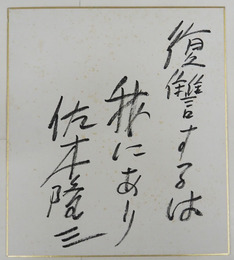 復讐するは
我にあり
佐木隆三